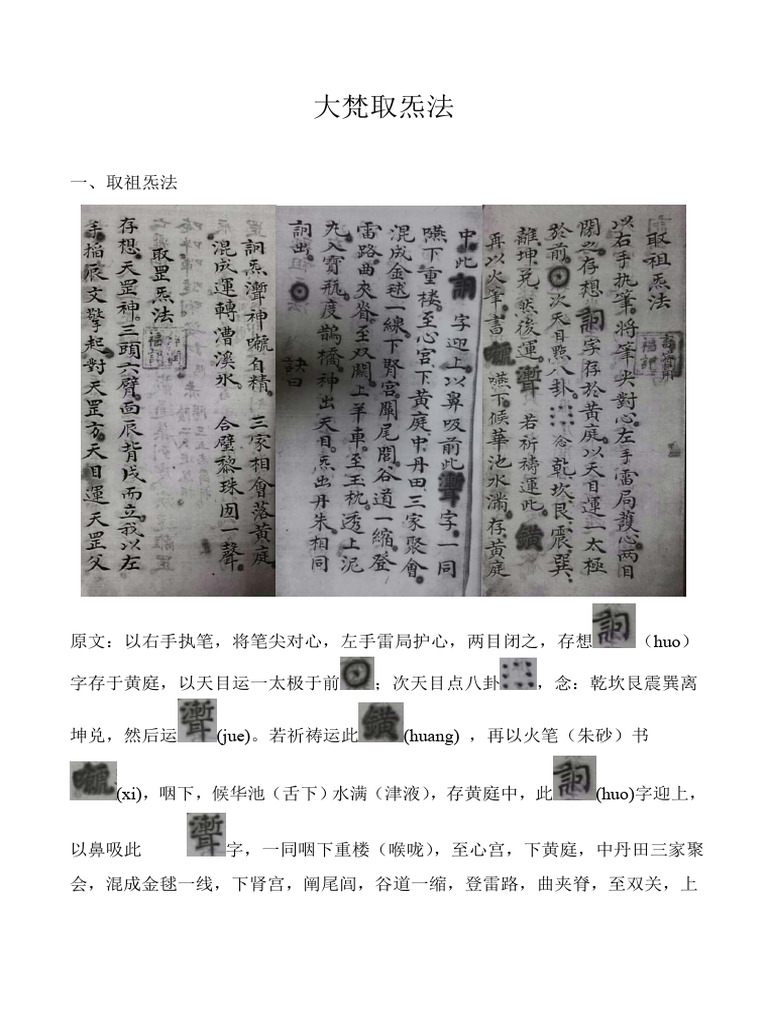 大梵取炁法
一、取祖炁法
取祖炁法
以右手执筆將筆尖對心左手雷局護心两目
閉之存想詗字存於黃庭以天目運一太極
於前次天目點八卦念乾坎艮震巽
離坤兌然後運若祈禱運此鐄
再以火筆書嚥下候華池水滿存黃庭
中此詗字迎上以鼻吸前此字一同
嚥下重楼至心宫下黄庭中丹田三家聚會
混成金毬一線下腎宫闡尾閭谷道一縮登
雷路曲夾脊至双關上羊車至玉枕透上泥
九入寶瓶度鵲橋神出天目炁出丹朱相同
詗出 訣曰
詗炁神自精 三家相會落黃庭
混成運轉漕溪水 合璧黎珠囙一聲
取罡炁法
存想天罡神三頭六臂面辰背戌而立我以左
手掐辰文擎起對天罡方天目運天罡父
原文：以右手执笔，将笔尖对心，左手雷局护心，两目闭之，存想詗（huo）
字存于黄庭，以天目运一太极于前；次天目点八卦，念：乾坎艮震巽离
坤兑，然后运(jue)。若祈祷运此鐄(huang) ，再以火笔（朱砂）书
(xi)，咽下，候华池（舌下）水满（津液），存黄庭中，此詗(huo)字迎上，
以鼻吸此字，一同咽下重楼（喉咙），至心宫，下黄庭，中丹田三家聚
会，混成金毬一线，下肾宫，阐尾闾，谷道一缩，登雷路，曲夹脊，至双关，上